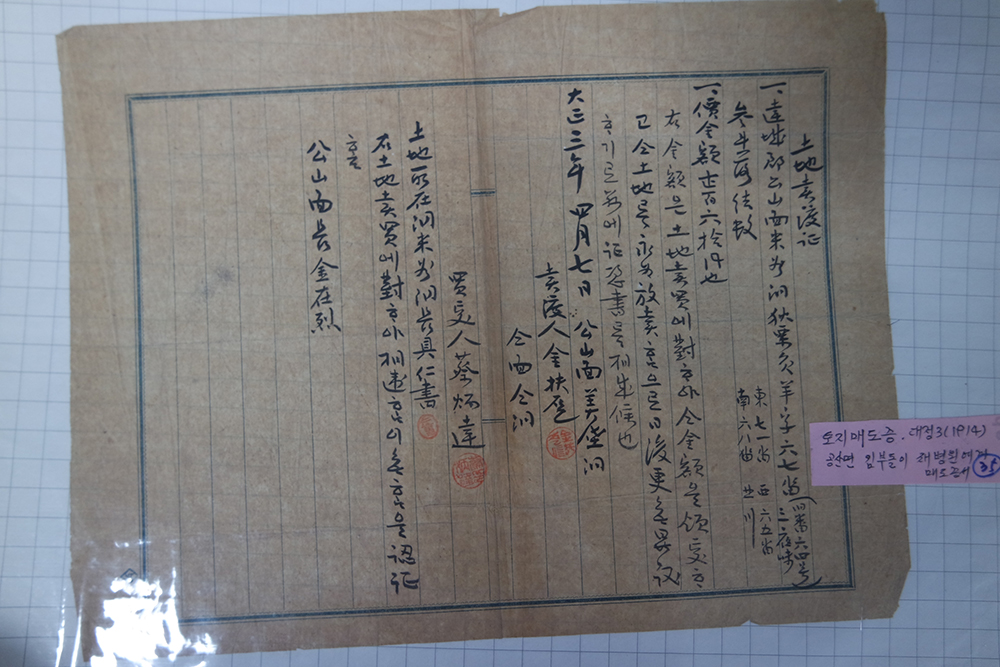 土地賣渡証
一、達城郡公山面米谷洞 羊字六七畓 四番六四号 三夜味
參斗落結數
東七一畓 西六五畓
南六八畓 北川
一、價金額 壹百六拾円也
右金額은土地賣買에對하야仝金額을領受하
고仝土地를永永放賣함으로日後更無異議
하기로玆에証 書를相成候也
大正三年 四月七日 公山面美垈洞
賣渡人金扶乭
仝面仝洞
買受人蔡炳達
土地所在洞米谷洞長具仁書
右土地賣買에對하야相違함이無함을認証
함
公山面長金在烈
토지매도증. 대정3(1914)
김부돌이 채병달에게
매도문서 35